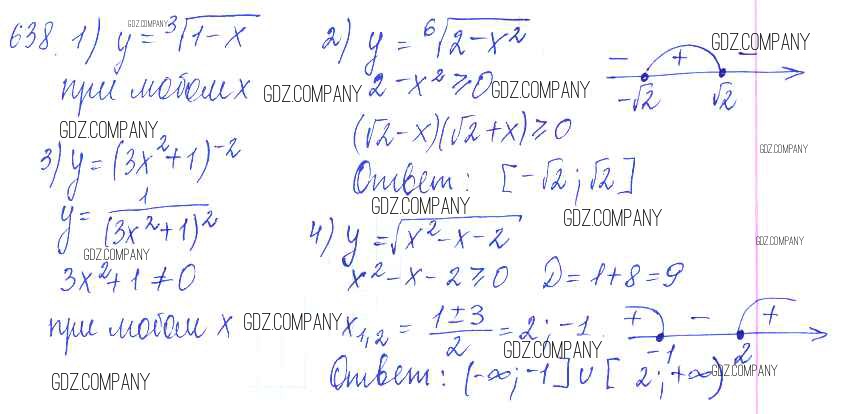 638. 1) y = ³√(1-x)
при любом x
2) y = ⁶√(2-x²)
2-x² ⩾ 0
- + -
-√2 √2
(√2-x)(√2+x) ⩾ 0
Ответ: [-√2; √2]
3) y = (3x²+1)⁻²
y = 1/(3x²+1)²
3x²+1 ≠ 0
при любом x
4) y = √(x²-x-2)
x²-x-2 ⩾ 0 D = 1+8 = 9
x₁,₂ = (1±3)/2 = 2; -1
+ - +
-1 2
Ответ: (-∞; -1] ∪ [2; +∞)
GDZ.COMPANY
GDZ.COMPANY
GDZ.COMPANY
GDZ.COMPANY
GDZ.COMPANY
GDZ.COMPANY
GDZ.COMPANY
GDZ.COMPANY
GDZ.COMPANY
GDZ.COMPANY
GDZ.COMPANY
GDZ.COMPANY
GDZ.COMPANY
GDZ.COMPANY